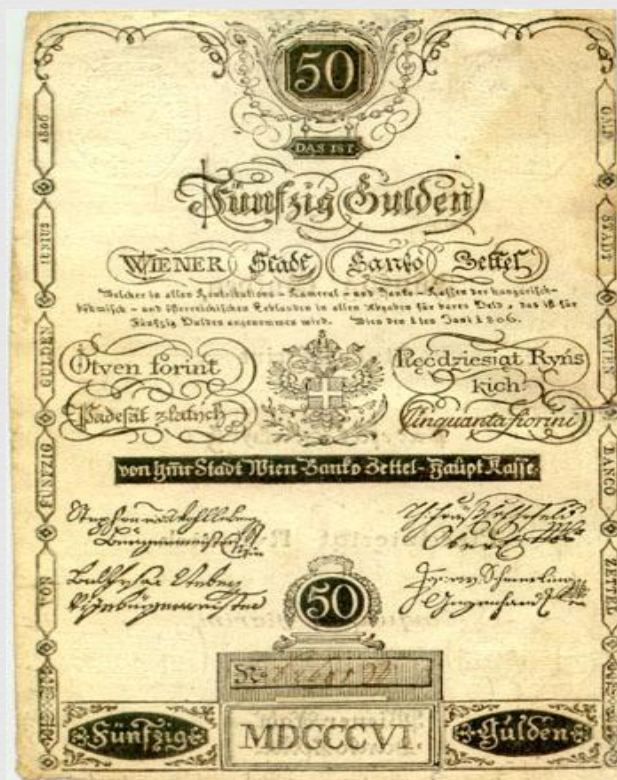 50
DAS IST
Fünfzig Gulden
WIENER Stadt Banko Zettel
Welcher in allen Kontributions - Kameral - und Banko - Kassen der hungarisch-
böhmisch - und österreichischen Erblanden in allen Abgaben für bares Geld, das ist für
Fünfzig Gulden angenommen wird. Wien den 1ten Juni 1806.
Ötven forint
Pięcdziesiąt Ryńs
kich
Padesát zlatych
Cinquanta fiorini
von der Stadt Wien-Banko Zettel-Haupt Kasse
50
No
Fünfzig
MDCCCVI.
Gulden
VON FÜNFZIG GULDEN IUNIUS 1806
STADT WIEN BANCO ZETTEL